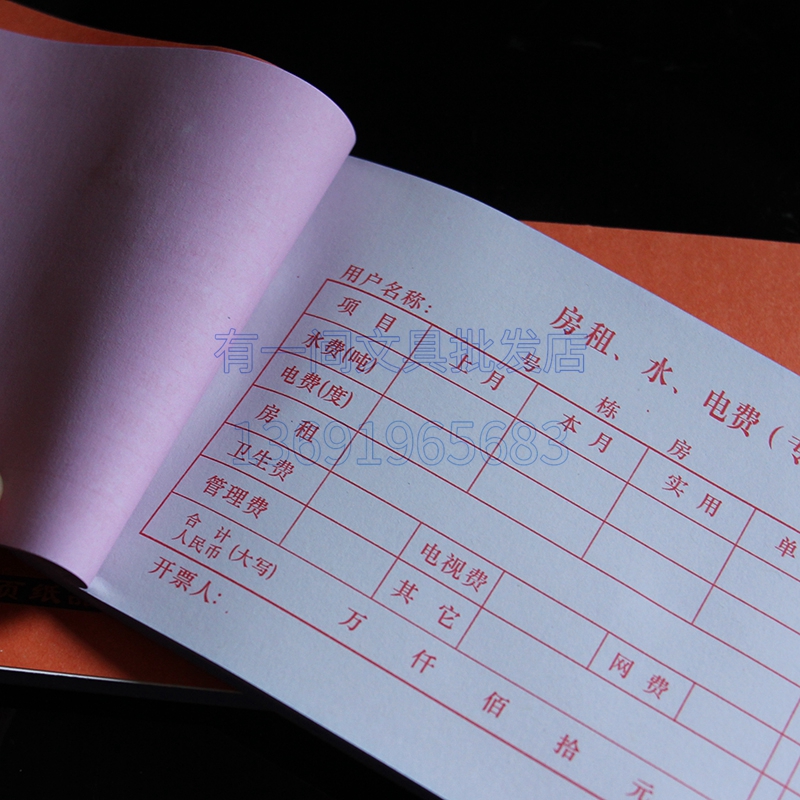 房租、水、电费（专
用户名称： 号 栋 房
项 目 上 月 本 月 实 用 单
水费(吨)
电费(度)
房 租
卫生费 电视费 网 费
管理费 其 它
合 计
人民币 (大写) 万 仟 佰 拾 元
开票人:
有一间文具批发店
13691965683